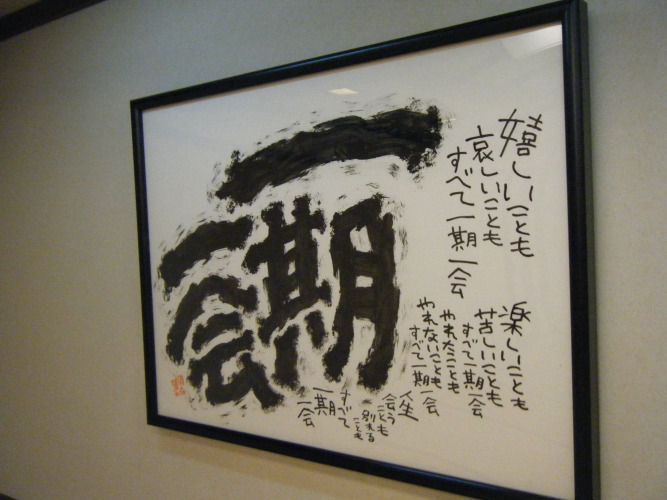 嬉しいことも
哀しいことも
すべて一期一会
楽しいことも
苦しいことも
すべて一期一会
やれたことも
やれないことも
すべて一期一会
人生
会うことも
別れることも
すべて
一期
一会
一期
一会